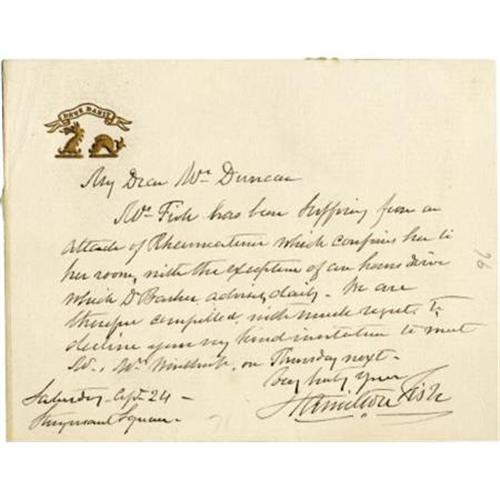 DEUS DABIT
My Dear Mrs Duncan
Mrs Fish has been suffering from an
attack of Rheumatism which confines her to
her room, with the exception of an hours drive
which Dr Barker advises daily. We are
therefore compelled, with much regret, to
decline your very kind invitation to meet
Mr. & Mrs Winthrop, on Thursday next—
Very truly Yours
Hamilton Fish
Saturday Apl. 24 —
Stuyvesant Square —